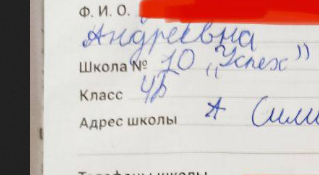 Ф. И. О.
Андреевна
Школа № 10 „Успех”
Класс 4Б
Адрес школы
Телефоны школы